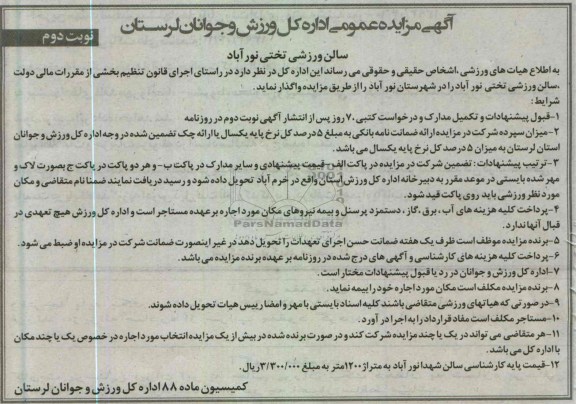 آگهی مزایده عمومی اداره کل ورزش و جوانان لرستان
نوبت دوم
سالن ورزشی تختی نور آباد
به اطلاع هیات های ورزشی ،اشخاص حقیقی و حقوقی می رساند این اداره کل در نظر دارد در راستای اجرای قانون تنظیم بخشی از مقررات مالی دولت
،سالن ورزشی تختی نور آباد را در شهرستان نور آباد را از طریق مزایده واگذار نماید.
شرایط :
۱-قبول پیشنهادات و تکمیل مدارک و درخواست کتبی ۷۰ روز پس از انتشار آگهی نوبت دوم در روزنامه
۲-میزان سپرده شرکت در مزایده ارائه ضمانت نامه بانکی به مبلغ ۵ درصد کل نرخ پایه یکسال یا ارائه چک تضمین شده در وجه اداره کل ورزش و جوانان
استان لرستان به میزان ۵ درصد کل نرخ پایه یکسال می باشد.
۳-ترتیب پیشنهادات : تضمین شرکت در مزایده در پاکت الف -قیمت پیشنهادی و سایر مدارک در پاکت ب- و هر دو پاکت در پاکت ج بصورت لاک و
مهر شده بایستی در موعد مقرر به دبیر خانه اداره کل ورزش استان واقع در خرم آباد تحویل داده شود و رسید دریافت نمایند ضمنا نام متقاضی و مکان
مورد نظر ورزشی باید روی پاکت قید شود.
۴-پرداخت کلیه هزینه های آب ، برق ،گاز ، دستمزد پرسنل و بیمه نیروهای مکان مورد اجاره بر عهده مستاجر است و اداره کل ورزش هیچ تعهدی در
قبال آنها ندارد.
۵-برنده مزایده موظف است ظرف یک هفته ضمانت حسن اجرای تعهدات را تحویل دهد در غیر اینصورت ضمانت شرکت در مزایده او ضبط می شود.
۶-پرداخت کلیه هزینه های کارشناسی و آگهی های درج شده در روزنامه بر عهده برنده مزایده می باشد.
۷-اداره کل ورزش و جوانان در رد یا قبول پیشنهادات مختار است .
۸-برنده مزایده مکلف است مکان مورد اجاره خود را بیمه نماید.
۹-در صورتی که هیاتهای ورزشی متقاضی باشند کلیه اسناد بایستی با مهر و امضا رییس هیات تحویل داده شوند.
۱۰-مستاجر مکلف است مفاد قرارداد را به اجرا در آورد .
۱۱-هر متقاضی می تواند در یک یا چند مزایده شرکت کند و در صورت برنده شده در بیش از یک مزایده انتخاب مورد اجاره در خصوص یک یا چند مکان
با اداره کل می باشد.
۱۲-قیمت پایه کارشناسی سالن شهدا نور آباد به متراژ ۱۲۰۰متر به مبلغ ۳/۳۰۰/۰۰۰ریال .
کمیسیون ماده ۸۸ اداره کل ورزش و جوانان لرستان
ParsNamadData